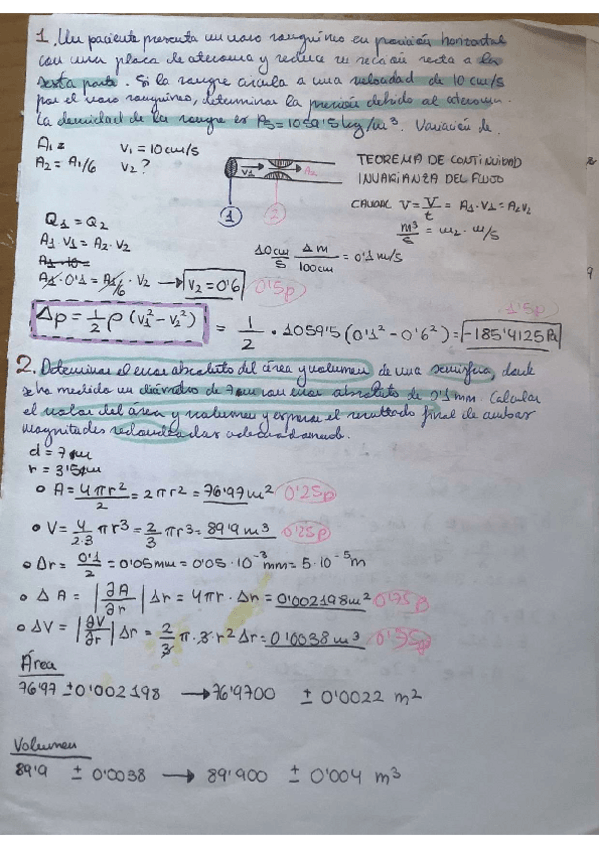 1. Un paciente presenta un vaso sanguíneo en posición horizontal
con una placa de ateroma y reduce su sección recta a la
sexta parte. Si la sangre circula a una velocidad de 10 cm/s
por el vaso sanguíneo, determinar la presión debido al ateroma.
La densidad de la sangre es ρs = 1059'5 kg/m³. Variación de
A1 = V1 = 10 cm/s
A2 = A1/6 V2?
V1 A2
1 2
TEOREMA DE CONTINUIDAD
INVARIANZA DEL FLUJO
CAUDAL V = V/t = A1·V1 = A2V2
m³/s = m2 · m/s
Q1 = Q2
A1 V1 = A2 · V2
A1 · 10 =
A1 · 0'1 = A1/6 · V2 → V2 = 0'6 0'5p
10cm/s Δm/100cm = 0'1 m/s
1'5p)
Δp = 1/2 ρ (V1² - V2²) = 1/2 · 1059'5 (0'1² - 0'6²) = -185'4125 Pa
2. Determinar el error absoluto del área y volumen de una semiesfera, donde
se ha medido un diámetro de 7 m con error absoluto de 0'1 mm. Calcular
el valor del área y volumen y expresar el resultado final de ambas
magnitudes redondeadas adecuadamente.
d = 7 m
r = 3'5 m
A = 4πr²/2 = 2πr² = 76'97 m² 0'25p
V = 4/2·3 πr³ = 2/3 πr³ = 89'9 m³ 0'25p
Δr = 0'1/2 = 0'05mm = 0'05 · 10⁻³ mm = 5 · 10⁻⁵ m
ΔA = |∂A/∂r| Δr = 4πr · Δr = 0'002198 m² 0'75p
ΔV = |∂V/∂r| Δr = 2/3 π · 3 r² Δr = 0'0038 m³ 0'75p
Área
76'97 ± 0'002198 → 76'9700 ± 0'0022 m²
Volumen
89'9 ± 0'0038 → 89'900 ± 0'004 m³